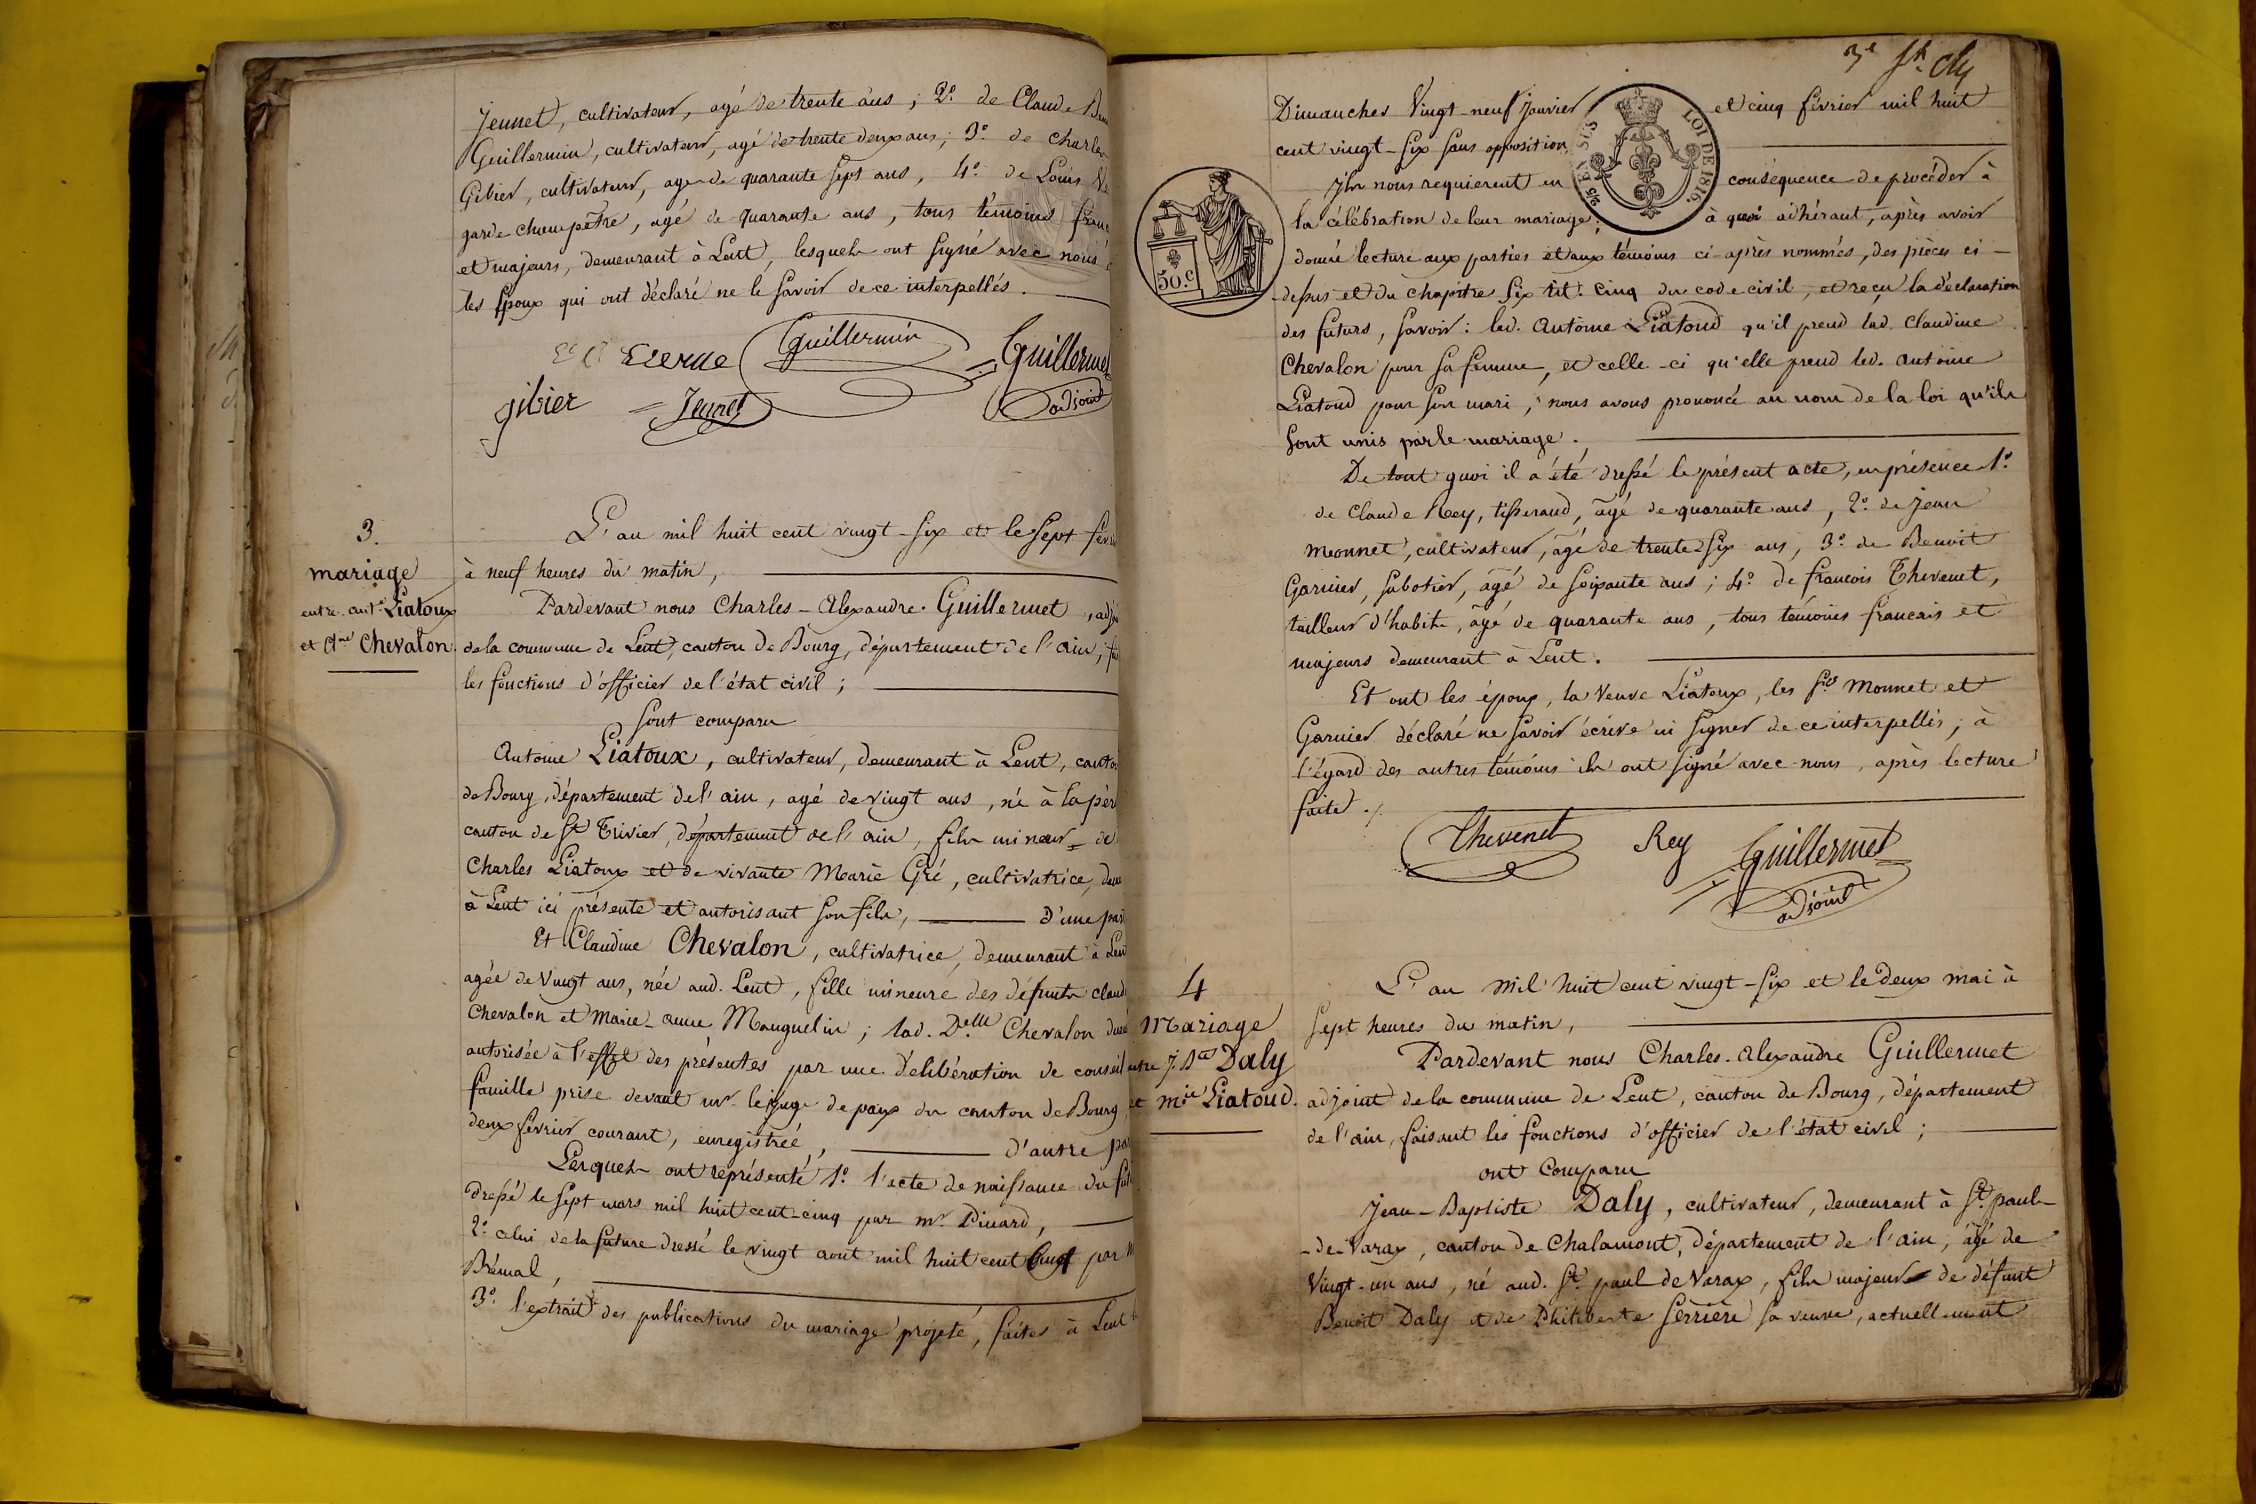 Jennet, cultivateur, agé de trente ans ; 2.° de Claude
Guillermin, cultivateur, agé de trente deux ans ; 3.° de Charles
Gibier, cultivateur, agé de quarante sept ans, 4.° de Louis
garde champêtre, agé de quarante ans, tous témoins
et majeurs, demeurant à Lent, lesquels ont signé avec nous
les époux qui ont déclaré ne le savoir de ce interpellés.
Guillermin
Guillermet
gibier
Jennet
adjoint
3.
mariage
entre ant.e Liatoux
et Cl.ne Chevalon.
L'an mil huit cent vingt-six et le sept
à neuf heures du matin,
Pardevant nous Charles-Alexandre Guillermet,
de la commune de Lent, canton de Bourg, département de l'ain,
les fonctions d'officier de l'état civil ;
sont comparu
Antoine Liatoux, cultivateur, demeurant à Lent,
de Bourg, département de l'ain, agé de vingt ans, né à
canton de St Trivier, département de l'ain, fils mineur de
Charles Liatoux et de vivante Marie Gré, cultivatrice,
à Lent ici présente et autorisant son fils, d'une
Et Claudine Chevalon, cultivatrice, demeurant à
agée de vingt ans, née aud. Lent, fille mineure des défunts
Chevalon et Marie-anne Manguelin ; lad. Delle Chevalon
autorisée à l'effet des présentes par une délibération de
famille prise devant mr. le juge de paix du canton de Bourg
deux février courant, enregistrée, d'autre
Lesquels ont représenté 1.° l'acte de naissance du
dressé le sept mars mil huit cent-cinq par mr. Pinard,
2.° celui de la future dressé le vingt aout mil huit cent cinq par
Brémal,
3.° l'extrait des publications du mariage projeté, faites à Lent
Dimanches vingt-neuf janvier et cinq février mil huit
cent vingt-six sans opposition
Ils nous requierent en conséquence de procéder à
la célébration de leur mariage ; à quoi adhérant, après avoir
donné lecture aux parties et aux témoins ci-après nommés, des pièces ci-
dessus et du chapitre six tit. cinq du code civil, et reçu la déclaration
des futurs, savoir : led. Antoine Liatoud qu'il prend lad. Claudine
Chevalon pour sa femme, et celle-ci qu'elle prend led. Antoine
Liatoud pour son mari, nous avons prononcé au nom de la loi qu'ils
sont unis par le mariage.
LOI DE 1816.
50.c
De tout quoi il a été dressé le présent acte, en présence 1.°
de Claude Rey, tisserand, agé de quarante ans, 2.° de Jean
Monnet, cultivateur, agé de trente six ans, 3.° de Benoit
Garnier, sabotier, agé de soixante ans ; 4.° de françois Thevenet,
tailleur d'habits, agé de quarante ans, tous témoins français et
majeurs demeurant à Lent.
Et ont les époux, la veuve Liatoux, les Srs Monnet et
Garnier déclaré ne savoir écrire ni signer de ce interpellés ; à
l'égard des autres témoins ils ont signé avec nous, après lecture
faite ./.
Thevenet
Rey
Guillermet
adjoint
4
Mariage
entre J. Bte Daly
et mie Liatoud.
L'an mil huit cent vingt-six et le deux mai à
sept heures du matin,
Pardevant nous Charles-Alexandre Guillermet
adjoint de la commune de Lent, canton de Bourg, département
de l'ain, faisant les fonctions d'officier de l'état civil ;
ont comparu
Jean-Baptiste Daly, cultivateur, demeurant à St. paul-
-de-Varax, canton de Chalamont, département de l'ain, agé de
vingt-un ans, né aud. St. paul de Varax, fils majeur de défunt
Benoit Daly et de Philiberte Serrière sa veuve, actuellement